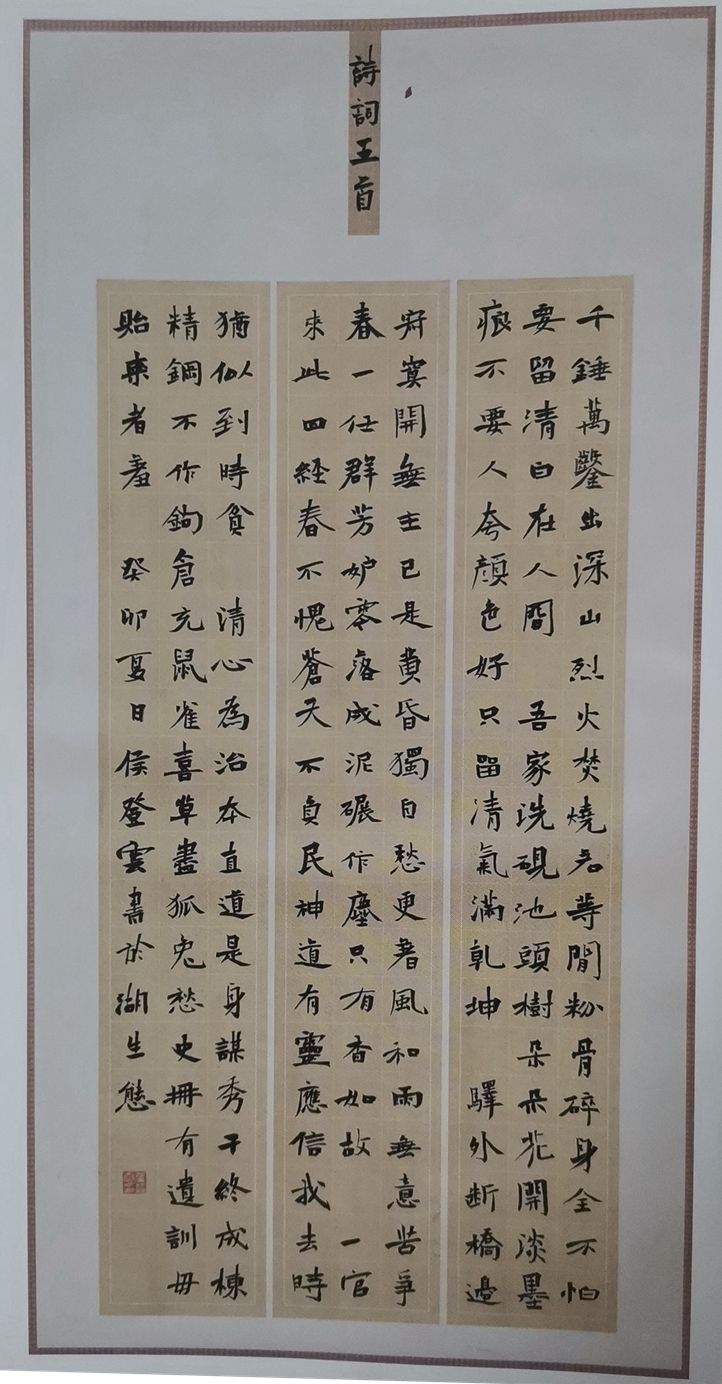 詩詞五首
千錘萬鑿出深山烈火焚燒若等閒粉骨碎身全不怕
要留清白在人間 吾家洗硯池頭樹朵朵花開淡墨
痕不要人夸顏色好只留清氣滿乾坤 驛外斷橋邊
寂寞開無主已是黃昏獨自愁更著風和雨無意苦爭
春一任群芳妒零落成泥碾作塵只有香如故 一官
來此四經春不愧蒼天不負民神道有靈應信我去時
猶似到時貧 清心為治本直道是身謀秀干終成棟
精鋼不作鉤倉充鼠雀喜草盡狐兔愁史冊有遺訓毋
貽來者羞 癸卯夏日侯登雲書於湖生態